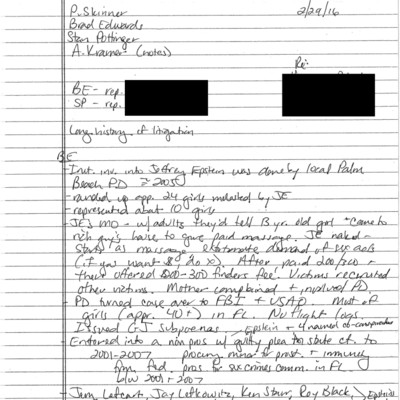 P. Skinner 2/29/16
Brad Edwards
Stan Pottinger
A. Kramer (notes)
Re:
BE - rep.
SP - rep.
Long history of litigation
BE
- Init. inv. into Jeffrey Epstein was done by local Palm
Beach PD ≥ 2005
- rounded up app. 24 girls molested by JE
- represented about 10 girls
- JE's MO - w/ adults they'd tell 13 yr. old girl "come to
rich guy's house to give paid massage. JE naked -
starts as massage, demand of sex acts
(if you want $, do x). After paid 200/300 -
then offered $200-300 finders fee. Victims recruited
other victims. Mother complained + involved PD.
- PD turned case over to FBI + USAO. Most of
girls (appr. 40+) in FL. No flight logs.
Issued GJ subpoenas - Epstein + 4 named co-conspirators
- Entered into a non pros w/ guilty plea to state ct. to
2001-2007 procuring minor for prost. + immunity
from fed. pros for sex crimes comm. in FL
b/w 2001 + 2007
- Jay Lefkowitz, Ken Starr, Roy Black, Epstein's